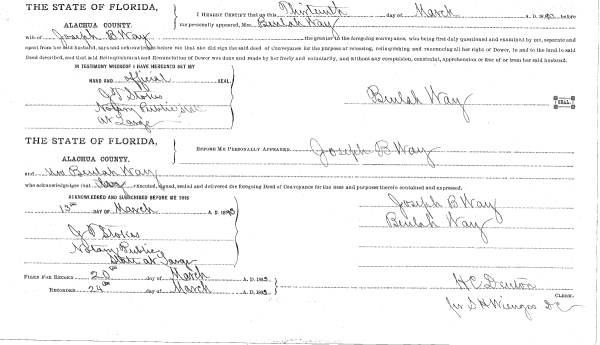 THE STATE OF FLORIDA,
ALACHUA COUNTY.
I HEREBY CERTIFY that on this Thirteenth day of March A. D. before
me personally appeared, Mrs. Beulah Way
wife of Joseph B Way the grantor in the foregoing conveyance, who being first duly questioned and examined by me, separate and
apart from her said husband, says and acknowledges before me that she did sign the said deed of Conveyance for the purpose of releasing, relinquishing and renouncing all her right of Dower, in and to the land in said
Deed described, and that said Relinquishment and Renunciation of Dower was done and made by her freely and voluntarily, and without any compulsion, constraint, apprehension or fear of or from her said husband.
IN TESTIMONY WHEREOF I HAVE HEREUNTO SET MY
HAND AND official SEAL
J D Stokes
Notary Public State
at Large
Beulah Way SEAL.
THE STATE OF FLORIDA,
ALACHUA COUNTY.
BEFORE ME PERSONALLY APPEARED Joseph B Way
and Mrs Beulah Way
who acknowledges that they executed, signed, sealed and delivered the foregoing Deed of Conveyance for the uses and purposes therein contained and expressed.
ACKNOWLEDGED AND SUBSCRIBED BEFORE ME THIS
13th DAY OF March A. D.
J D Stokes
Notary Public
State at Large
Joseph B Way
Beulah Way
FILED FOR RECORD 20th day of March A. D.
RECORDED 24th day of March A. D.
H C Denton
CLERK.
per S H Wienges D C